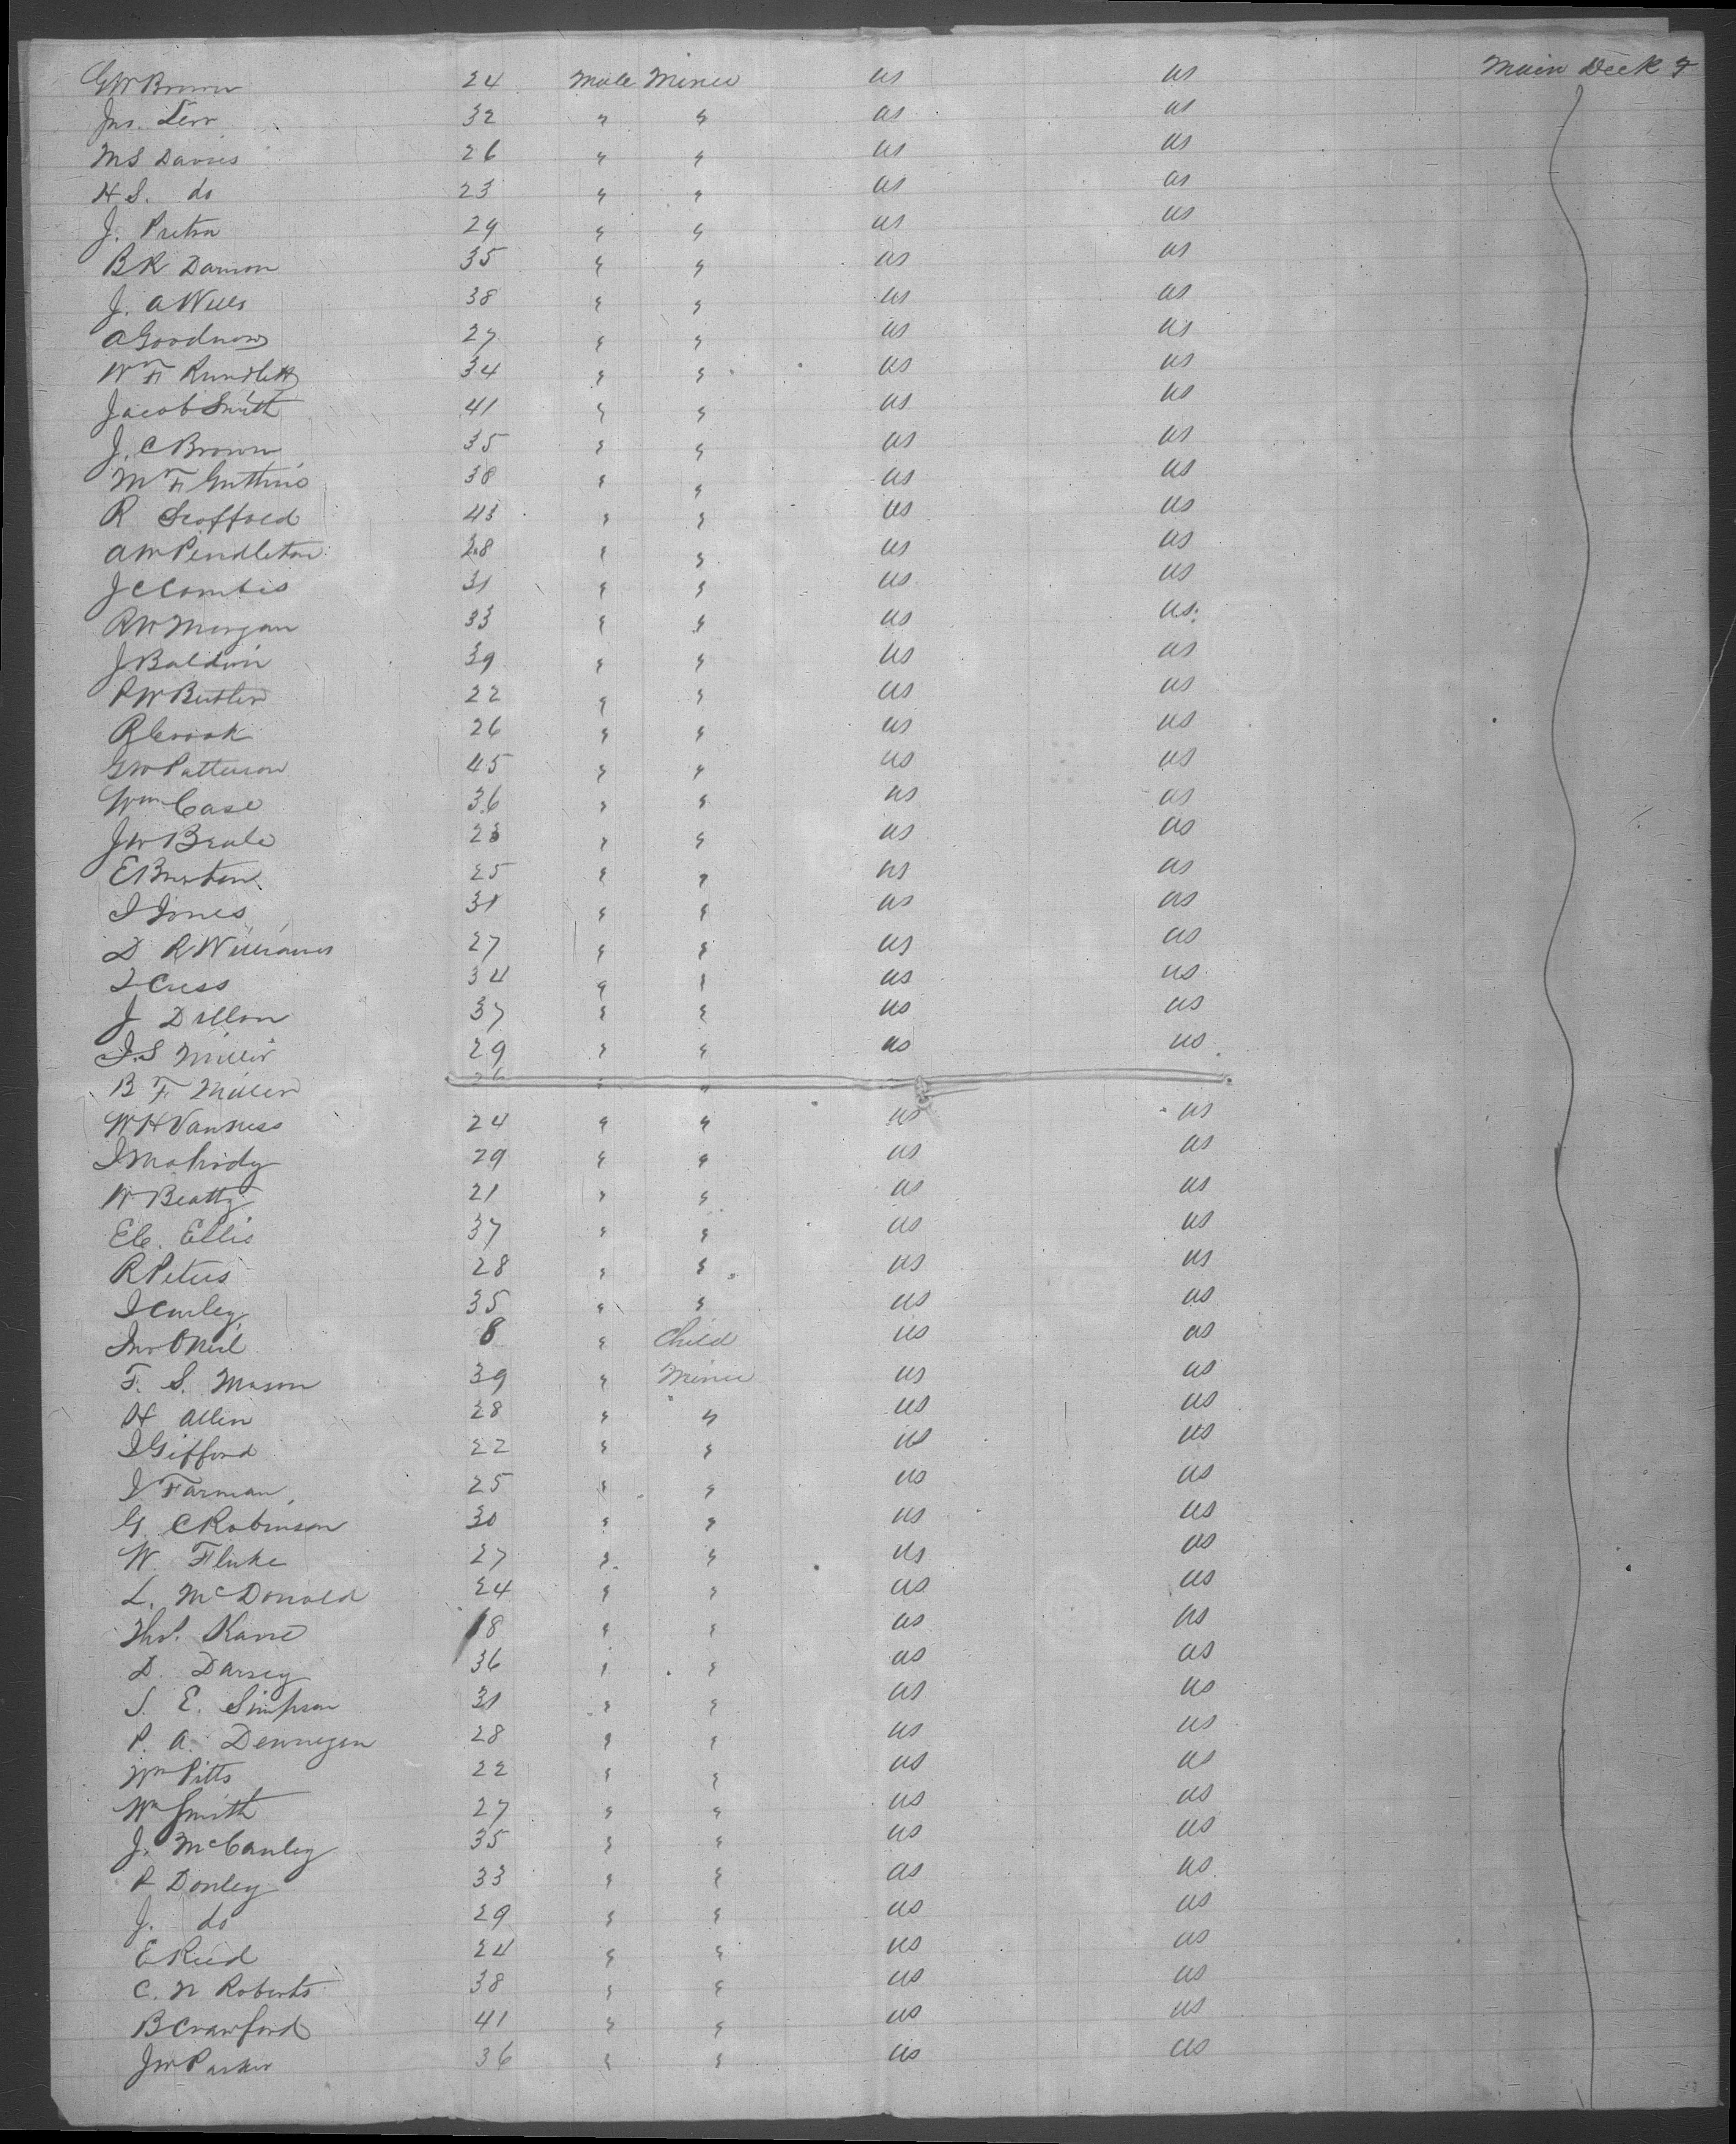 GW Brown 24 Male Miner US US Main Deck F
Jno. 32 " " US US
MS Davies 26 " " US US
H S. do 23 " " US US
J. 29 " " US US
BR Damon 35 " " US US
J. A Wells 38 " " US US
A Goodnow 27 " " US US
Wm F Rundlett 34 " " US US
Jacob Smith 41 " " US US
J. C Brown 35 " " US US
F Guthrie 38 " " US US
R Scoffold 43 " " US US
AW Pendleton 28 " " US US
J C Combes 31 " " US US
RW Morgan 33 " " US US
J Baldwin 39 " " US US
PW Butler 22 " " US US
R Cook 26 " " US US
GW Patterson 45 " " US US
Wm Case 36 " " US US
JW Beale 23 " " US US
E Burton 25 " " US US
I Jones 31 " " US US
D R Williams 27 " " US US
I Cress 34 " " US US
J Dillon 37 " " US US
I.S Miller 29 " " US US
B F Miller 26 " "
WH Vanness 24 " " US US
I 29 " " US US
W Beatty 21 " " US US
EC. Ellis 37 " " US US
R Peters 28 " " US US
I Curley 35 " " US US
Jno ONeil 8 " Child US US
F. S. Mason 39 " Miner US US
H Allen 28 " " US US
I Gifford 22 " " US US
I Farman 25 " " US US
G. C Robinson 30 " " US US
W. Fluke 27 " " US US
L. McDonald 24 " " US US
Thos. Kane 18 " " US US
D. Darsey 36 " " US US
S. E. Simpson 31 " " US US
P. A. Dennegan 28 " " US US
Wm Pitts 22 " " US US
Wm Smith 27 " " US US
J. McCauley 35 " " US US
P Donley 33 " " US US
J. do 29 " " US US
E Reed 24 " " US US
C. N Roberts 38 " " US US
B Crawford 41 " " US US
JW Parker 36 " " US US